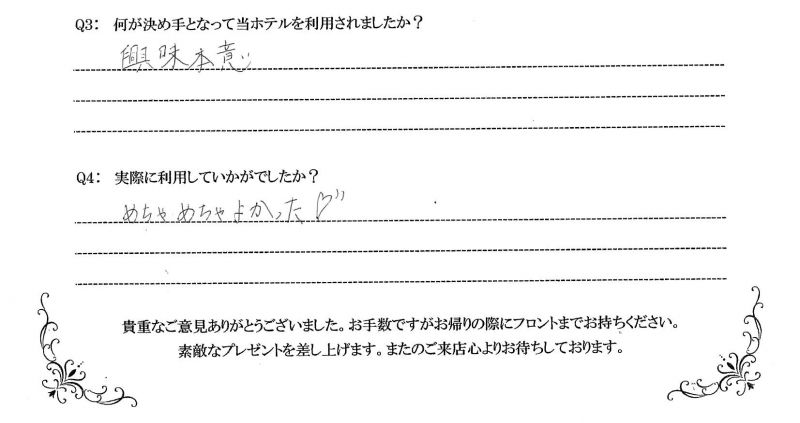 Q3： 何が決め手となって当ホテルを利用されましたか？
興味本意
Q4： 実際に利用していかがでしたか？
めちゃめちゃよかった♡
貴重なご意見ありがとうございました。お手数ですがお帰りの際にフロントまでお持ちください。
素敵なプレゼントを差し上げます。またのご来店心よりお待ちしております。